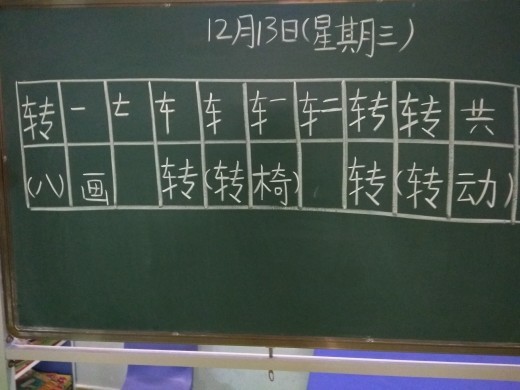 12月13日(星期三)
转一𠂇车车车一车二转转共
(八)画 转(转椅) 转(转动)